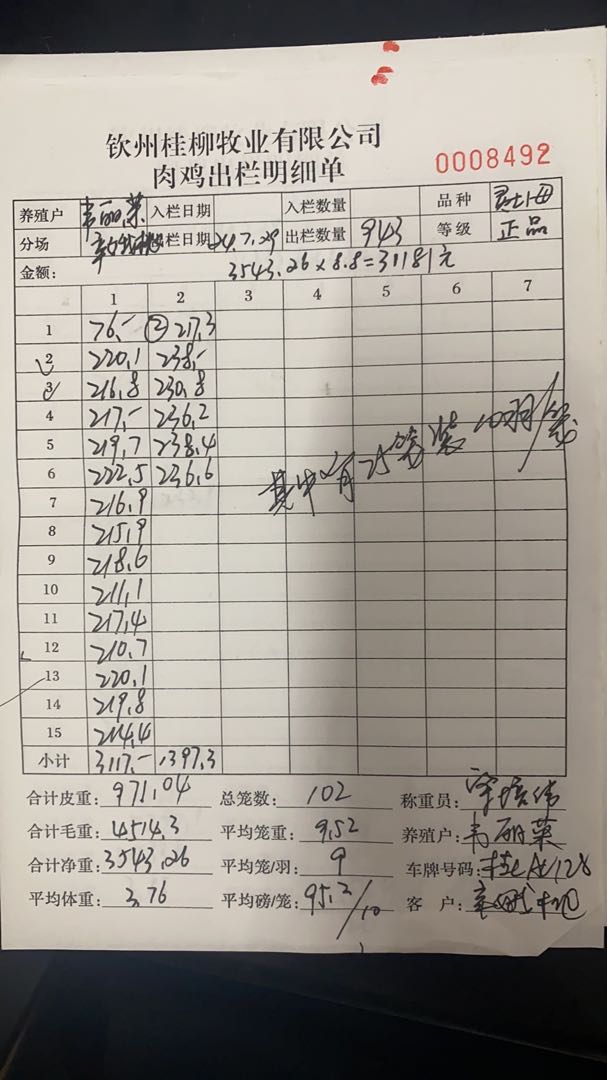 钦州桂柳牧业有限公司
肉鸡出栏明细单
0008492
养殖户 韦丽荣 入栏日期 入栏数量 品种
分场 出栏日期 24.7.29 出栏数量 943 等级 正品
金额: 3543.26×8.8=31181元
1 2 3 4 5 6 7
1 76,- ② 217.3
2 220,1 238,-
3 216,8 230,8
4 217,- 236,2
5 219,7 238,4
6 222,5 236,6
其中有25笼装10羽/笼
7 216,9
8 215,9
9 218,6
10 211,1
11 217,4
12 210,7
13 220,1
14 219,8
15 214,4
小计 3117,- 1397,3
合计皮重: 971,04 总笼数: 102 称重员:
合计毛重: 4514,3 平均笼重: 9,52 养殖户: 韦丽荣
合计净重: 3543,26 平均笼/羽: 9 车牌号码:
平均体重: 3,76 平均磅/笼: 95,2/10 客户: